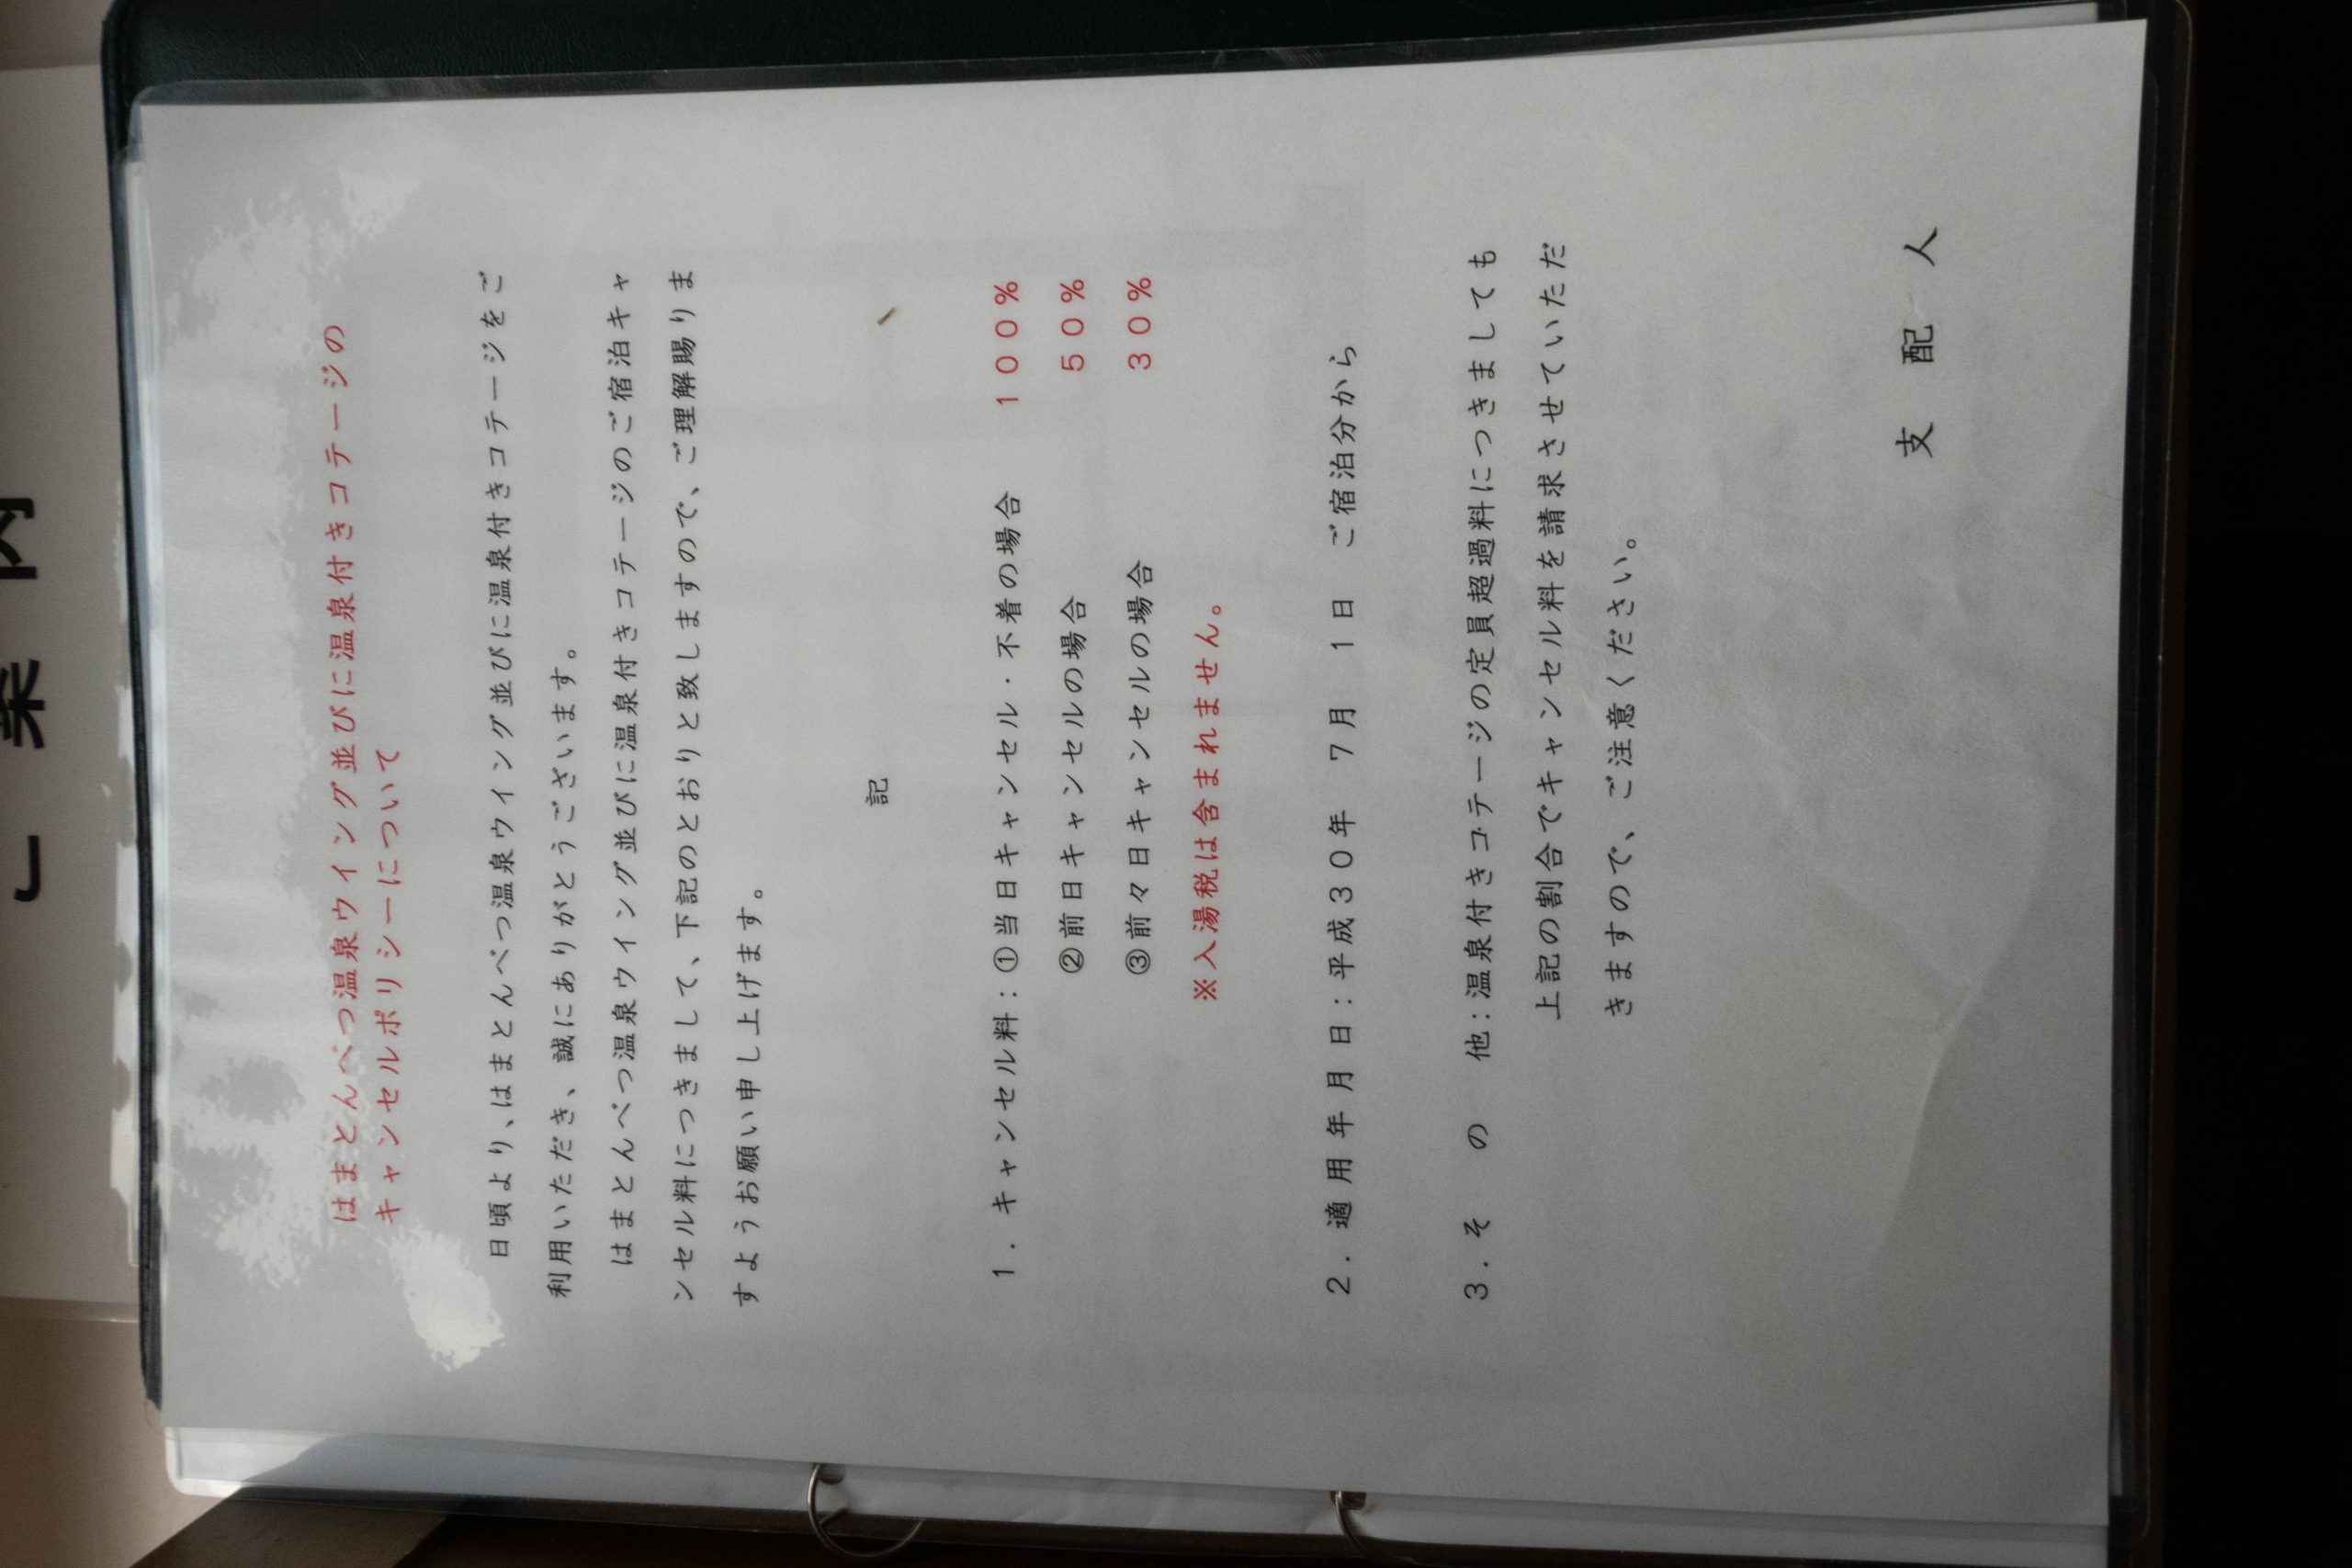 はまとんべつ温泉ウイング並びに温泉付きコテージの
キャンセルポリシーについて
日頃より、はまとんべつ温泉ウイング並びに温泉付きコテージをご
利用いただき、誠にありがとうございます。
はまとんべつ温泉ウイング並びに温泉付きコテージのご宿泊キャ
ンセル料につきまして、下記のとおりと致しますので、ご理解賜りま
すようお願い申し上げます。
記
１．キャンセル料：①当日キャンセル・不着の場合　１００％
②前日キャンセルの場合　５０％
③前々日キャンセルの場合　３０％
※入湯税は含まれません。
２．適用年月日：平成３０年　７月　１日　ご宿泊分から
３．そ　の　他：温泉付きコテージの定員超過料につきましても
上記の割合でキャンセル料を請求させていただ
きますので、ご注意ください。
支　配　人